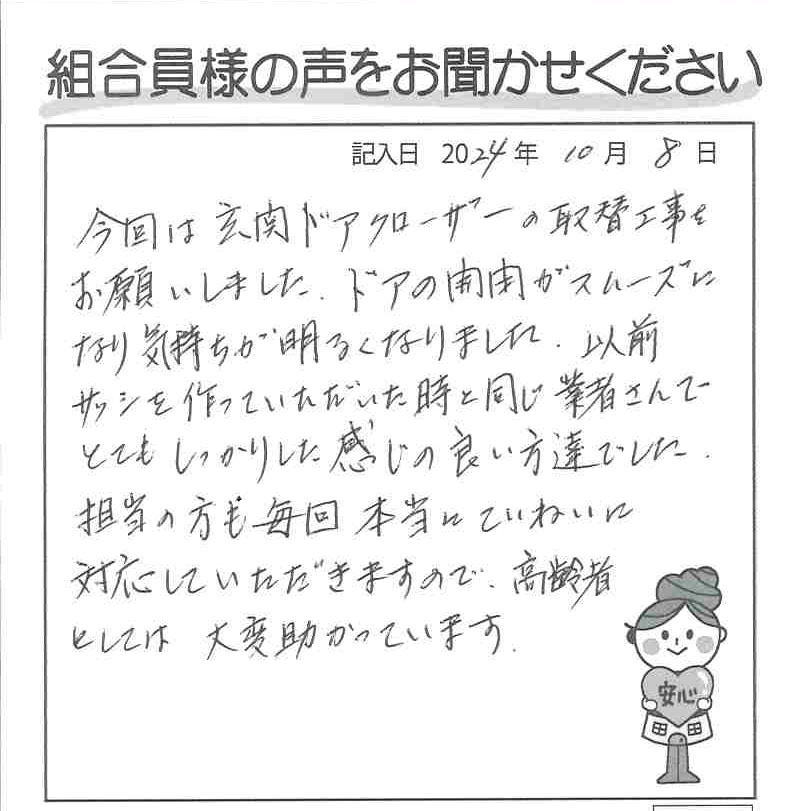 組合員様の声をお聞かせください
記入日 2024年 10月 8日
今回は玄関ドアクローザーの取替工事を
お願いしました. ドアの開閉がスムーズに
なり気持ちが明るくなりました. 以前
サッシを作っていただいた時と同じ業者さんで
とてもしっかりした感じの良い方達でした.
担当の方も毎回本当にていねいに
対応していただきますので、高齢者
としては大変助かっています.
安心